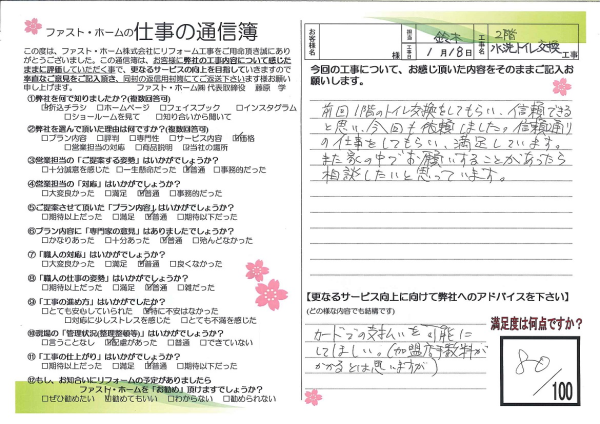 ファスト・ホームの仕事の通信簿
この度は、ファスト・ホーム株式会社にリフォーム工事をご用命頂き誠にあり
がとうございました。この通信簿は、お客様に弊社の工事内容について感じた
ままに評価していただく事で、更なるサービスの向上を目指していきますので
率直なご意見をご記入頂き、同封の返信用封筒にてご返送下さいます様お願い
申し上げます。 ファスト・ホーム㈱ 代表取締役 藤原 学
①弊社を何で知りましたか?(複数回答可)
☑折込チラシ □ホームページ □フェイスブック □インスタグラム
□ショールームを見て □知り合いから聞いて
②弊社を選んで頂いた理由は何ですか?(複数回答可)
□プラン内容 □評判 □専門店 □サービス内容 ☑価格
□営業担当の対応 □商品説明 ☑当社の場所
③営業担当の「ご提案する姿勢」はいかがでしょうか?
□十分誠意を感じた □一生懸命だった ☑普通 □事務的だった
④営業担当の「対応」はいかがでしょうか?
□大変良かった □満足 ☑普通 □事務的だった
⑤ご提案させて頂いた「プラン内容」はいかがでしょうか?
□期待以上だった □満足 ☑普通 □期待以下だった
⑥プラン内容に「専門家の意見」はありましたでしょうか?
□かなりあった □十分あった ☑普通 □殆んどなかった
⑦「職人の対応」はいかがでしょうか?
□大変良かった □満足 ☑普通 □良くなかった
⑧「職人の仕事の姿勢」はいかがでしょうか?
□期待以上だった □満足 ☑普通 □雑だった
⑨「工事の進め方」はいかがでしたか?
□とても安心していられた ☑特に不安はなかった
□対応に少しストレスを感じた □とても不満を感じた
⑩現場の「管理状況(整理整頓等)」はいかがでしょうか?
□言うことなし ☑配慮があった □普通 □できていない
⑪「工事の仕上がり」はいかがでしょうか?
□期待以上だった □満足 ☑普通 □期待以下だった
⑫もし、お知合いにリフォームの予定がありましたら
ファスト・ホームを「お勧め」頂けますでしょうか?
□ぜひ勧めたい ☑勧めてもいい □わからない □勧められない
お客様名 様 担当 鈴木 工事名 2階
水洗トイレ交換 工事
工事日 1月18日
今回の工事について、お感じ頂いた内容をそのままご記入お
願いします。
前回1階のトイレ交換をしてもらい、信頼できる
と思い、今回も依頼しました。信頼通り
の仕事をしてもらい、満足しています。
また家の中でお願いすることがあったら
相談したいと思っています。
【更なるサービス向上に向けて弊社へのアドバイスを下さい】
(どの様な内容でも結構です)
カードでの支払いを可能に
してほしい。(加盟店手数料が
かかるとは思いますが)
満足度は何点ですか?
80/100